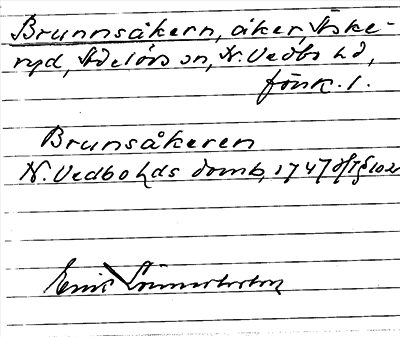 Brunnsåkern, åker, Äske-
ryd, Adelövs sn, N. Vedbo hd,
fönk. 1.
Brunsåkeren
N. Vedbo hds domb, 1747 § 102
Erik